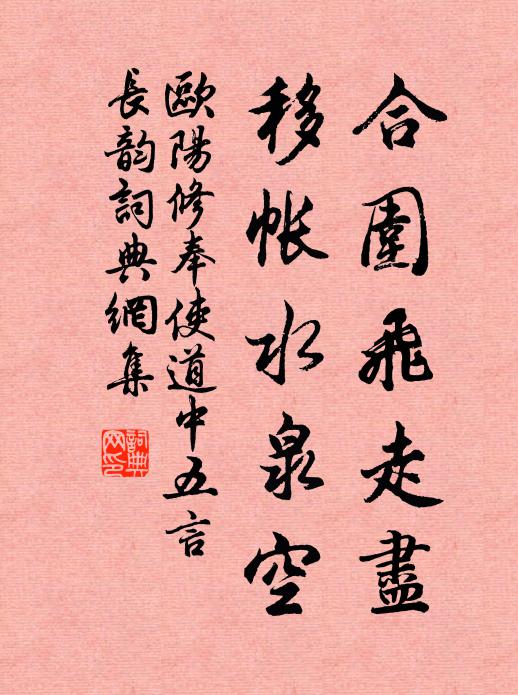 合圍飛走盡
移帐水泉空
歐陽修奉使道中五言
長韵詞典網集
詞典網印